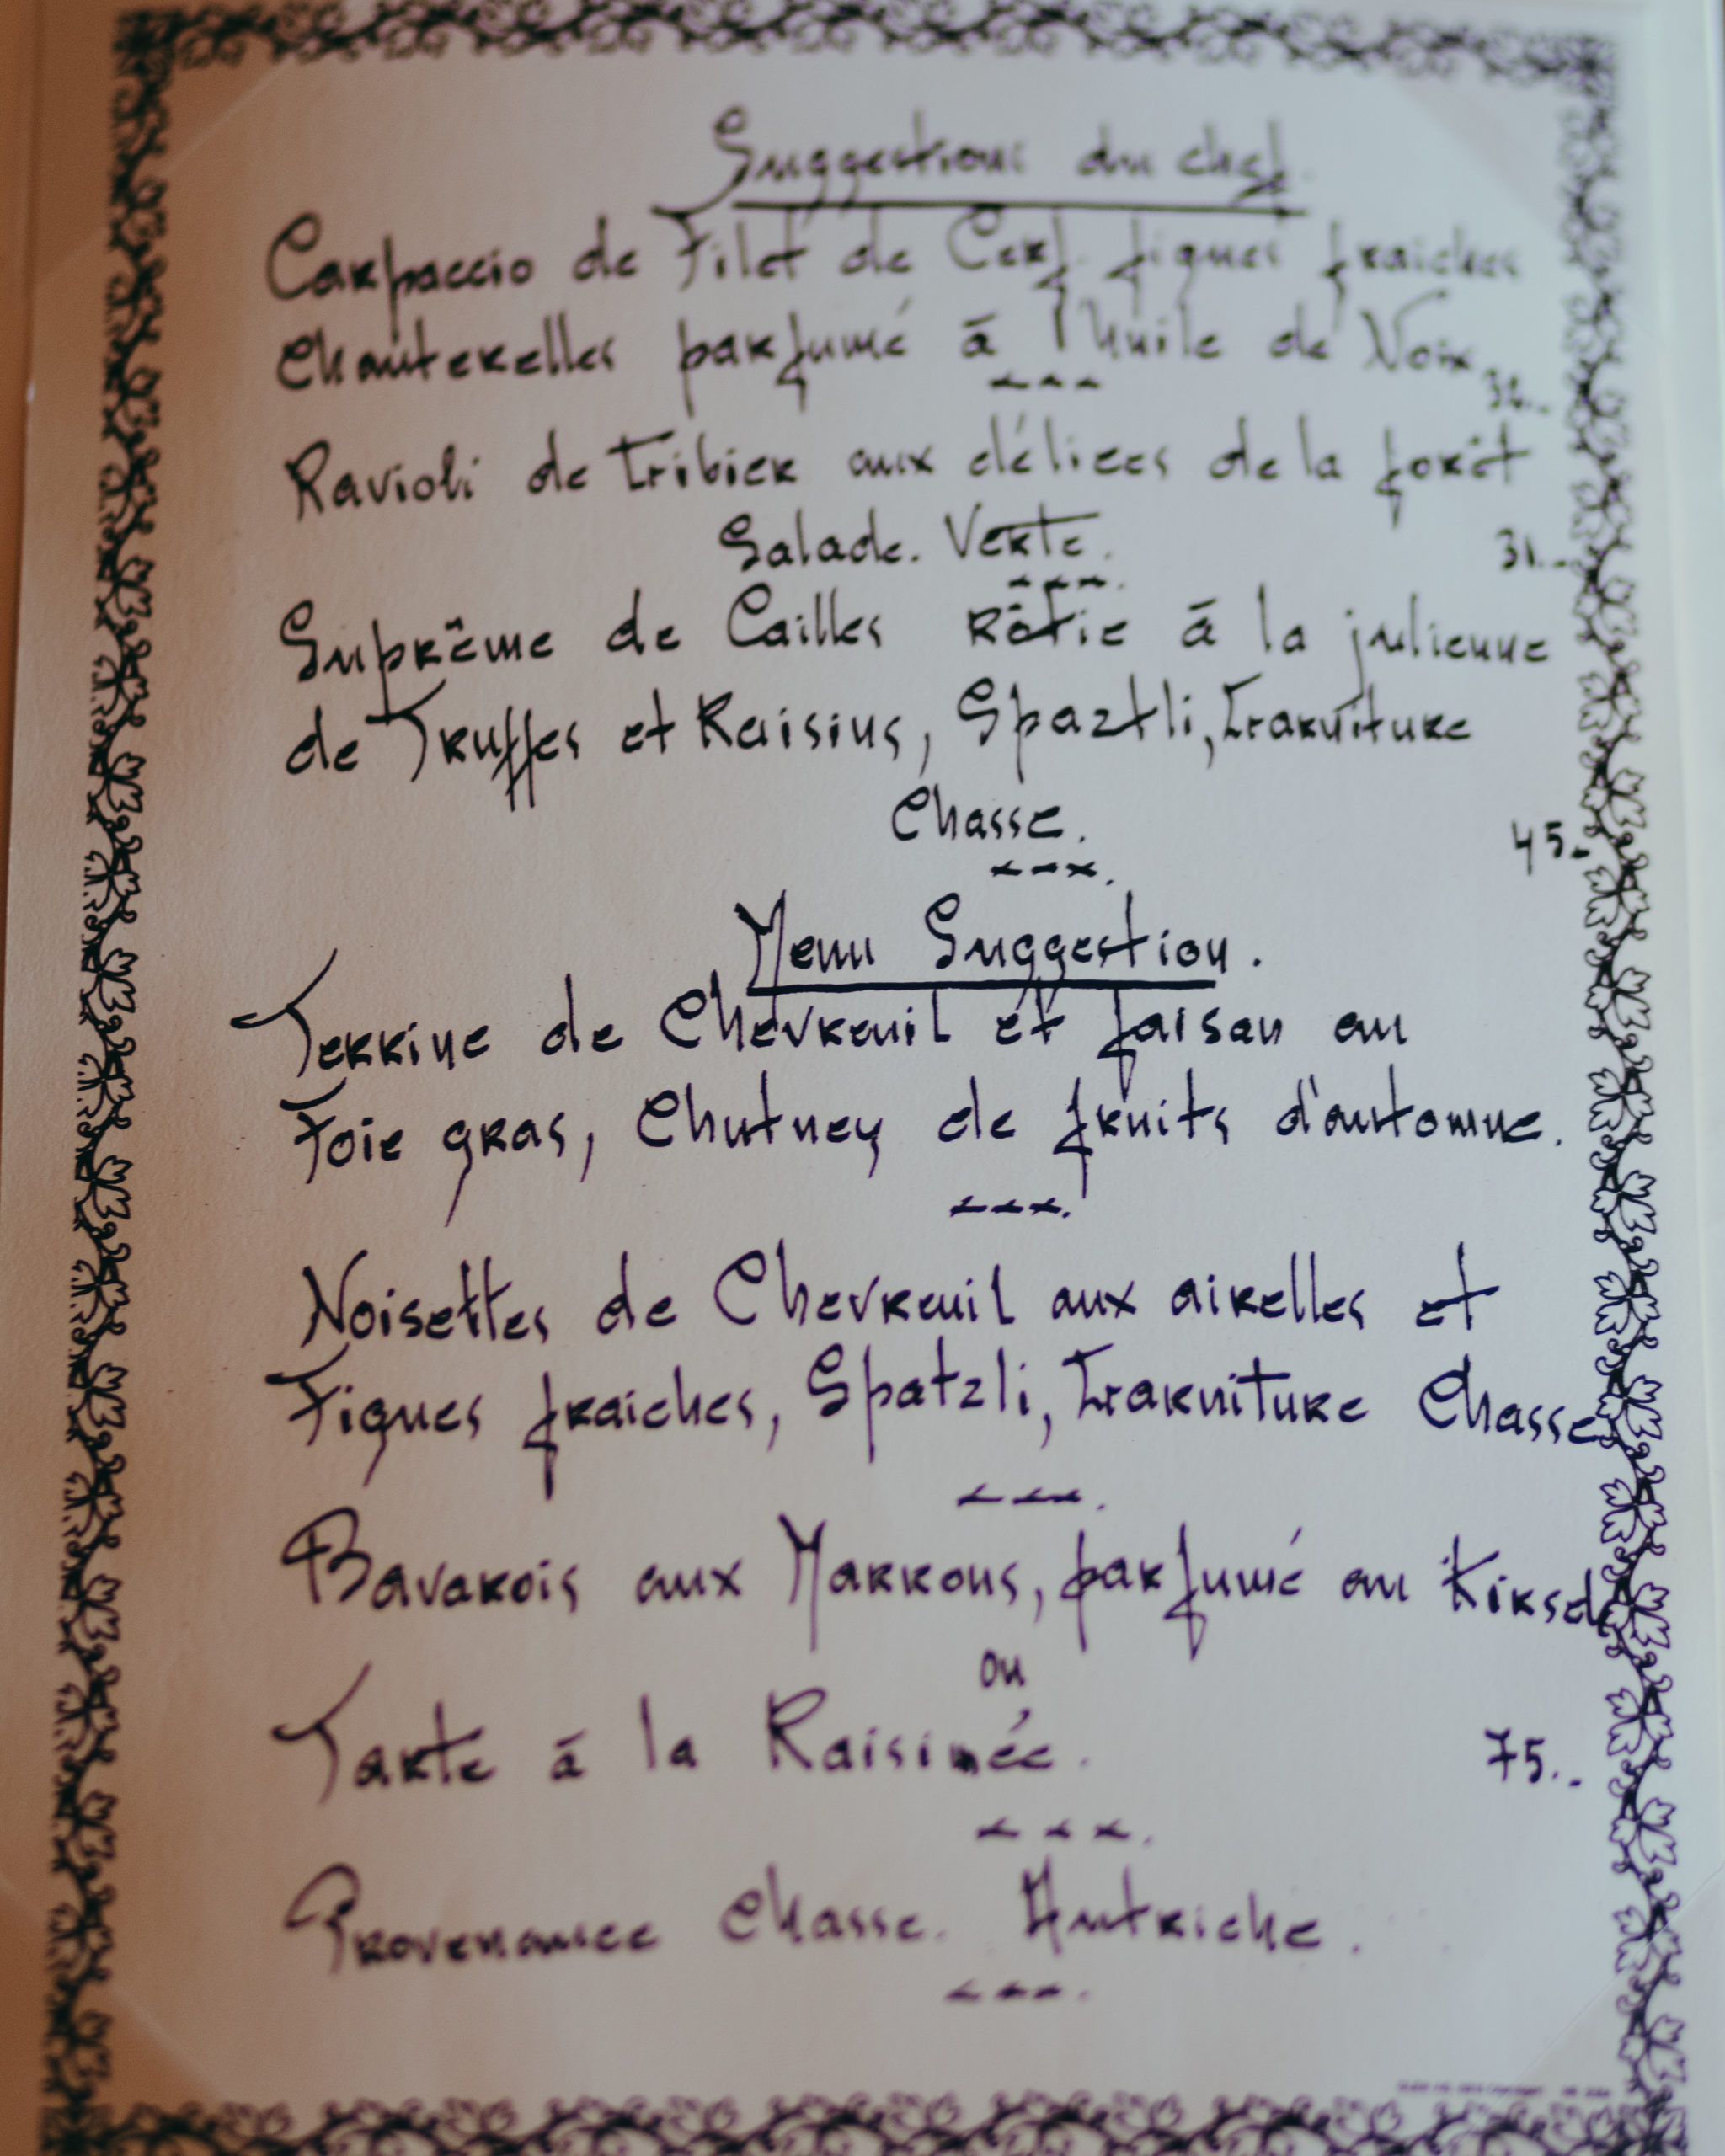 Suggestions du chef.
Carpaccio de Filet de Cerf. figues fraiches
Chanterelles parfumé à l'huile de Noix
Ravioli de Gibier aux délices de la forêt
Salade. Verte. 31.-
Suprême de Cailles Rôtie à la julienne
de Truffes et Raisins, Spaztli, Garniture
Chasse. 45.-
Menu Suggestion.
Terrine de Chevreuil et faisan au
Foie gras, Chutney de fruits d'automne.
Noisettes de Chevreuil aux airelles et
Figues fraiches, Spatzli, Garniture Chasse
Bavarois aux Marrons, parfumé au Kirsch
ou
Tarte à la Raisinée. 75.-
Provenance Chasse. Autriche.